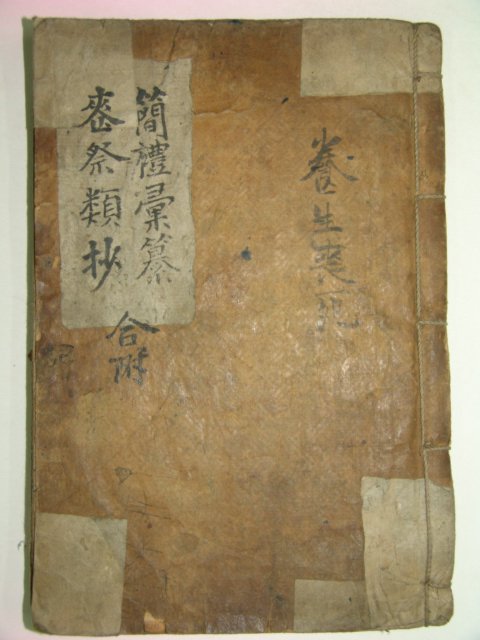 養生喪死
簡禮彙纂
喪祭類抄
合附